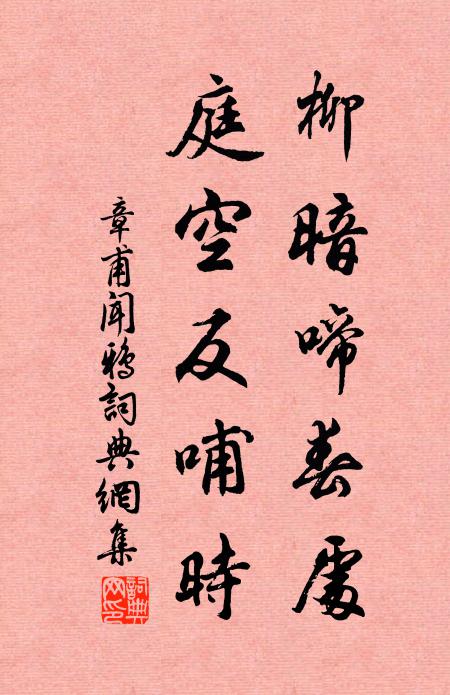 柳暗啼春處
庭空反哺時
章甫聞鴉詞典網集
詞典网印